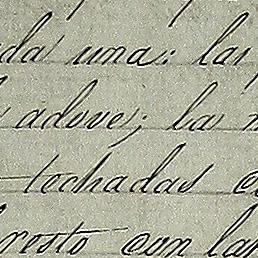 da una: la
adove; la
techadas c
resto con la